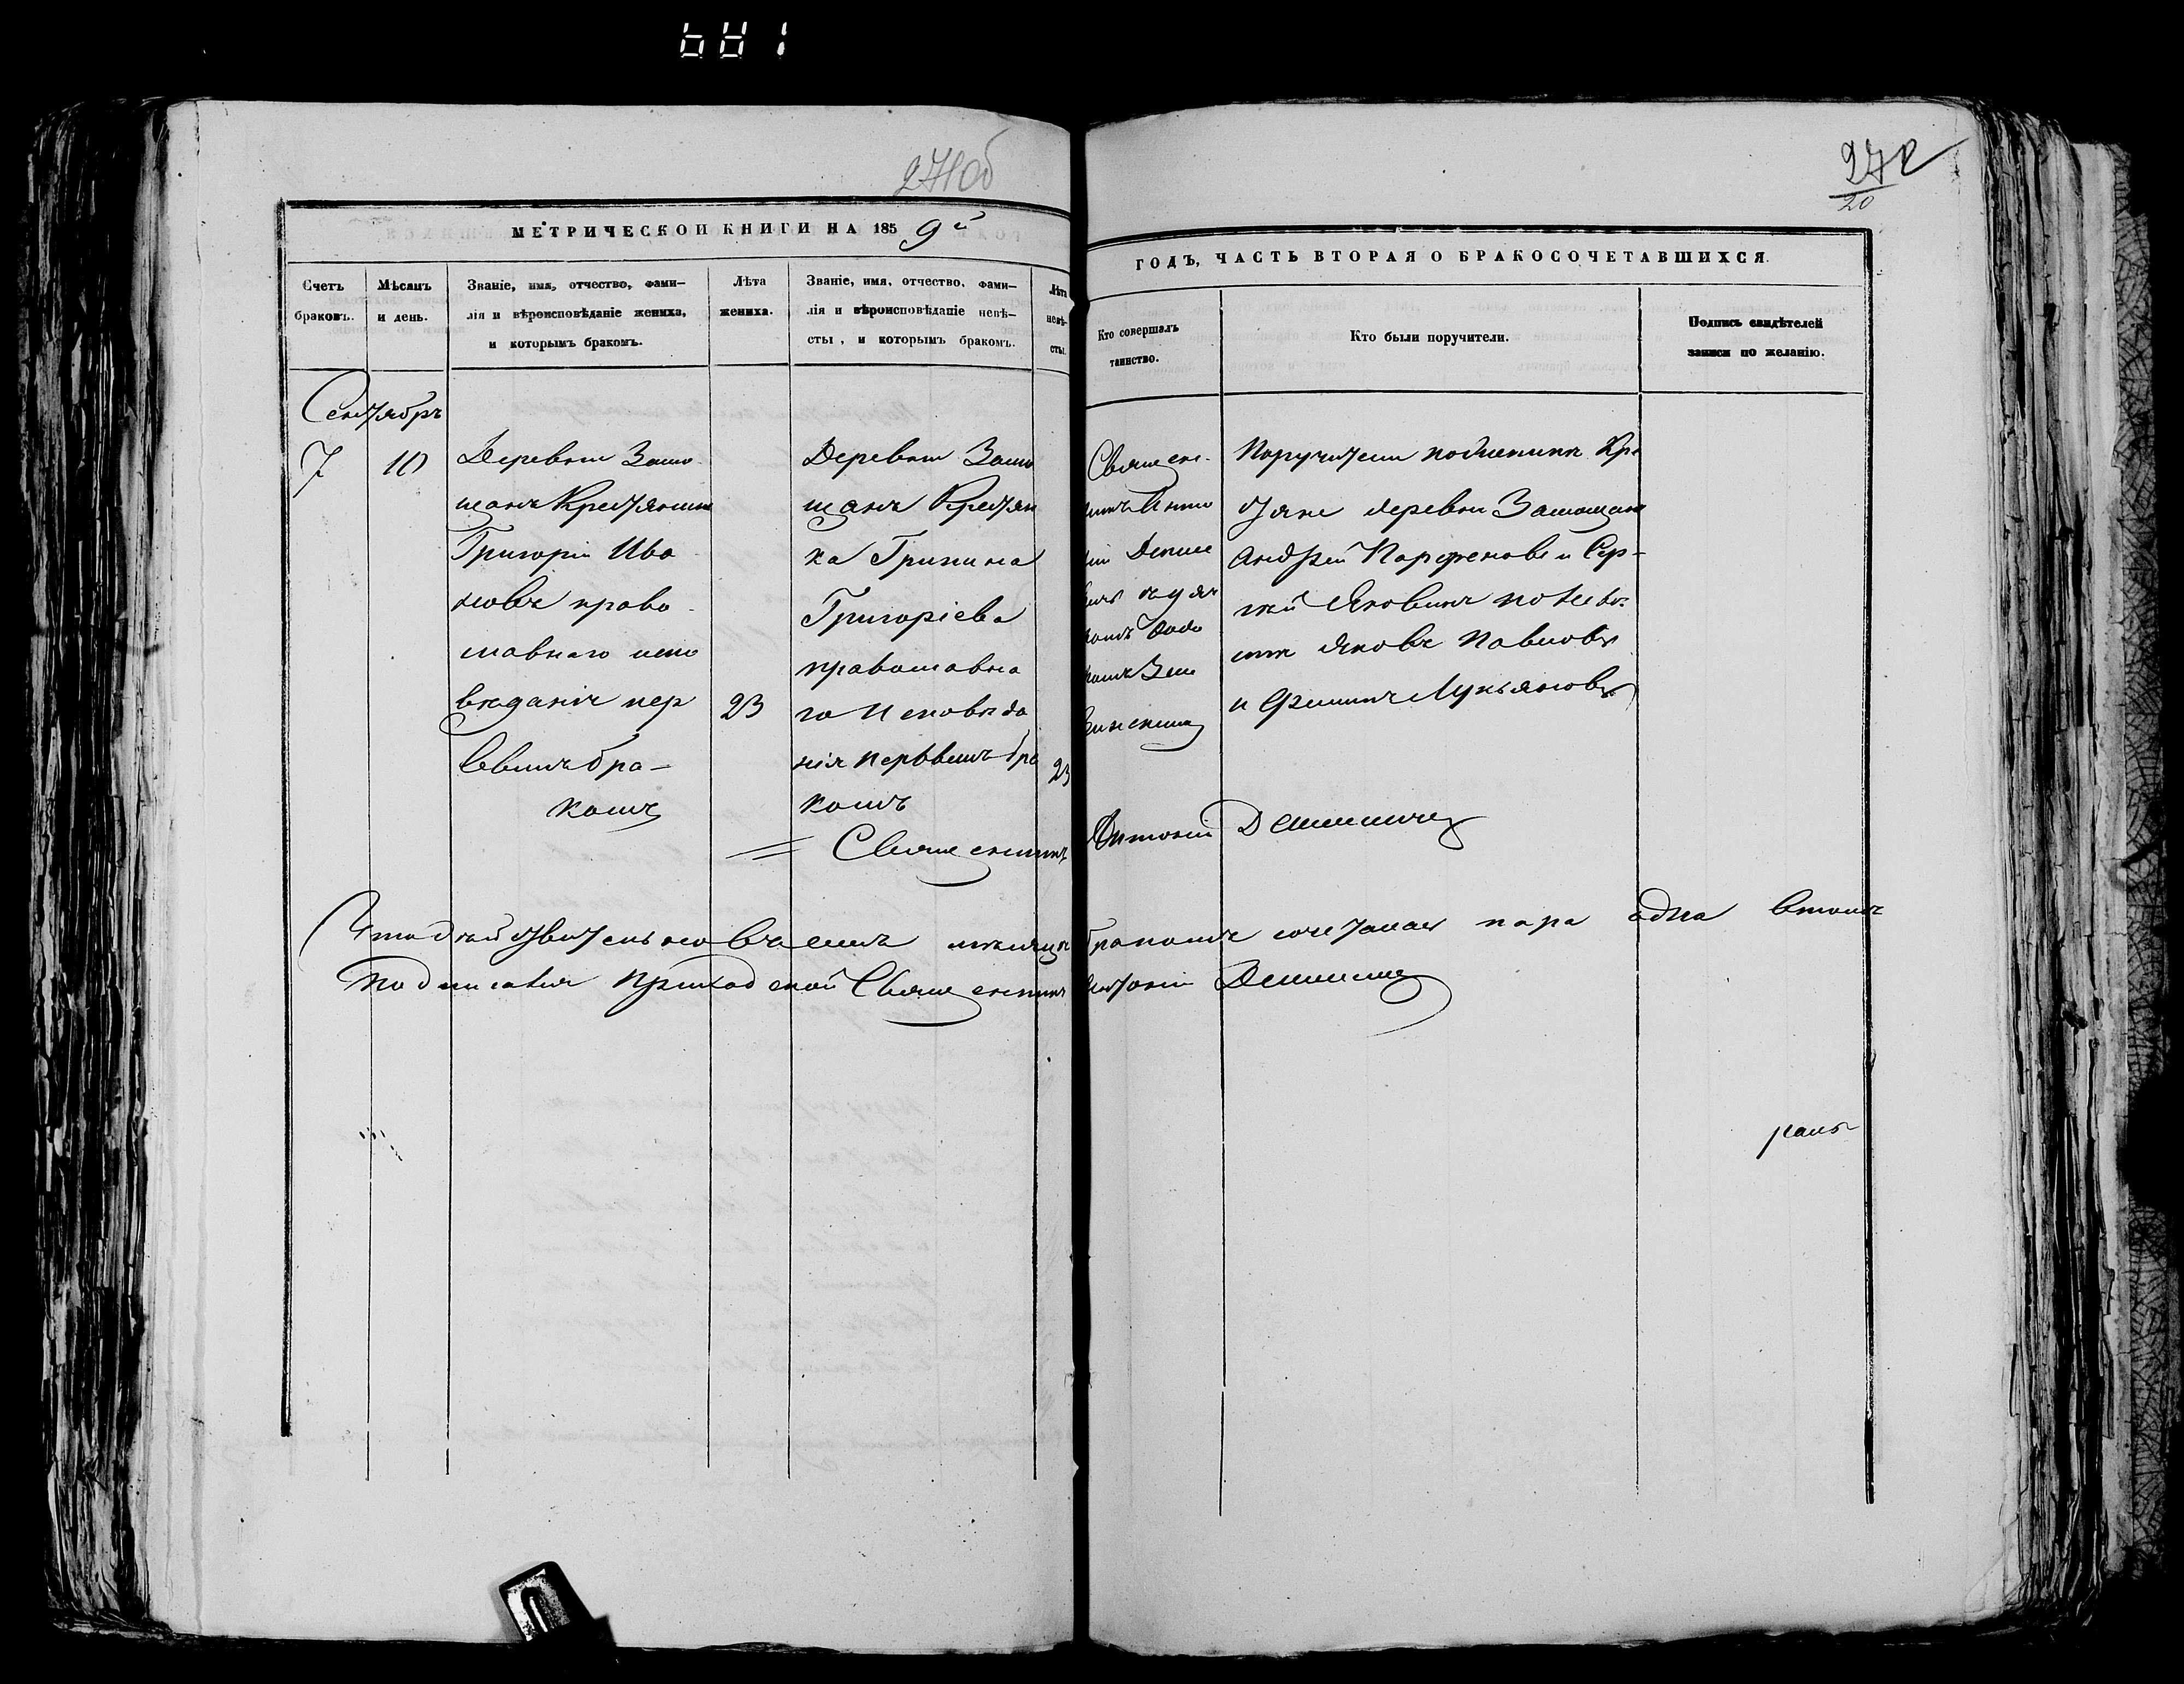 681
271об
272
20
МЕТРИЧЕСКОЙ КНИГИ НА 1859й
ГОДЪ, ЧАСТЬ ВТОРАЯ О БРАКОСОЧЕТАВШИХСЯ.
Счетъ
браковъ.
Мѣсяцъ
и день.
Званіе, имя, отчество, фами-
лія и вѣроисповѣданіе жениха,
и которымъ бракомъ.
Лѣта
жениха.
Званіе, имя, отчество, фами-
лія и вѣроисповѣданіе невѣ-
сты, и которымъ бракомъ.
Лѣта
невѣ-
сты.
Кто совершалъ
таинство.
Кто были поручители.
Подпись свидѣтелей
записи по желанію.
Сентябрь
7
10
Деревни Замо
щанъ Крестянинъ
Григорій Ива
новъ право
славнаго испо
вѣданія пер
ввымъ бра-
комъ
23
Деревни Замо
щанъ Крестян
ка Грипина
Григоріева
православна
го Исповѣда
нія перввымъ бра
комъ
23
Священ-
никъ Анто
ній
Поручители по женихѣ Кре
стяне деревни Замощанъ
Андрей Парфеновъ и Сер-
гѣй Яковъ по Невѣ
стѣ Яковъ Павловъ
и Филипъ Лукьяновъ
= Священникъ Антоній
Что дѣйствительно въ семъ мѣсяцѣ бракомъ сочеталась пара одна втомъ
подписался Приходской Священникъ Антоній